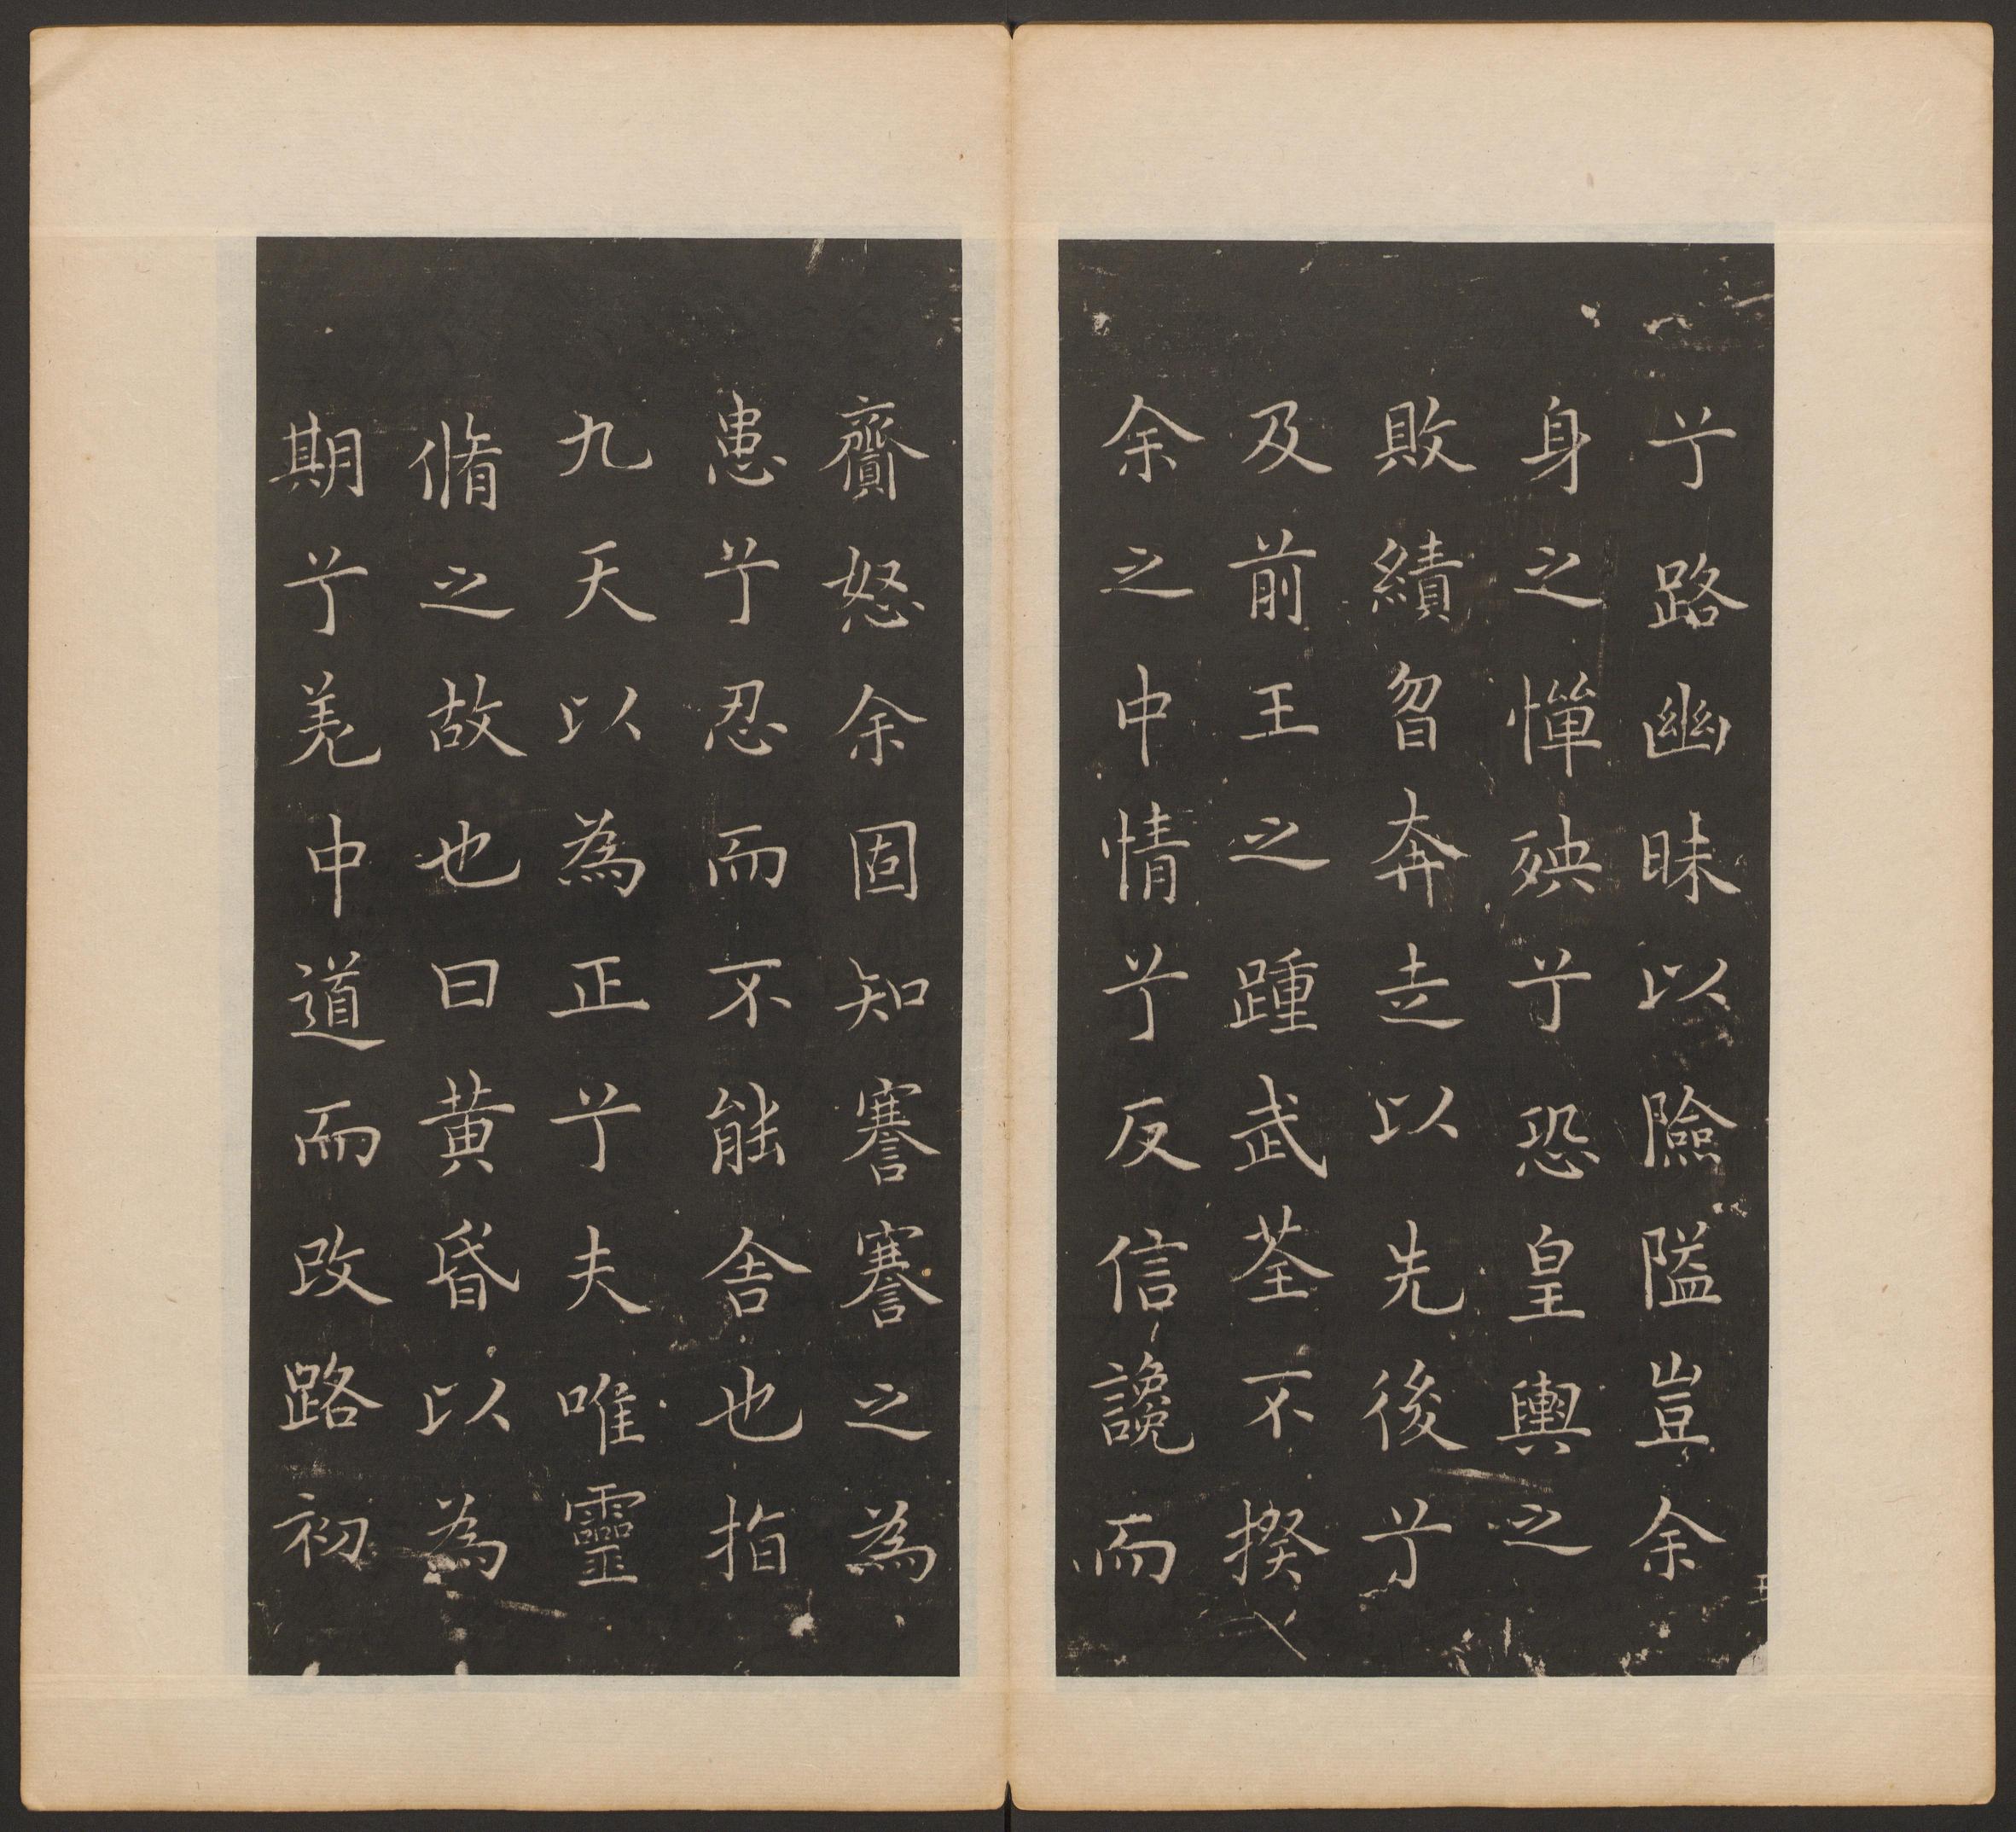 兮路幽昧以險隘豈余
身之憚殃兮恐皇輿之
敗績曶奔走以先後兮
及前王之踵武荃不揆
余之中情兮反信讒而
齎怒余固知謇謇之為
患兮忍而不能舍也指
九天以為正兮夫唯靈
脩之故也曰黄昏以為
期兮羌中道而改路初